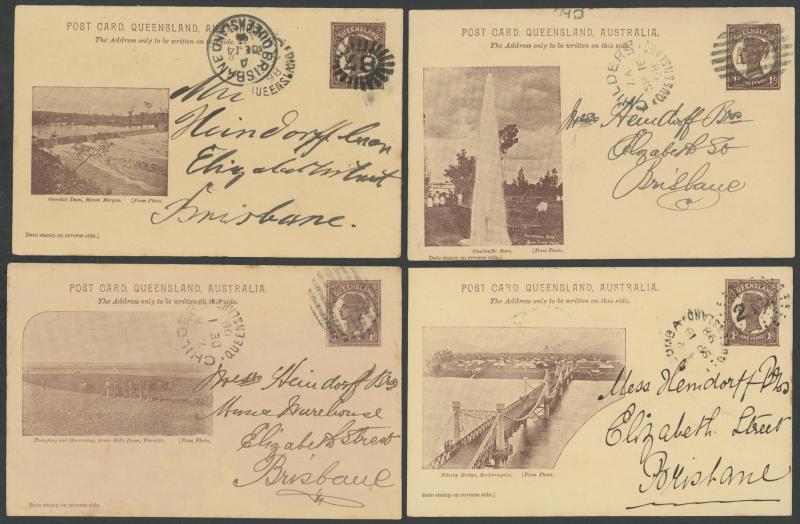 POST CARD, QUEENSLAND, AUSTRALIA.
The Address only to be written on this side.
BRISBANE
QUEENSLAND
DE 14
QUEENSLAND
Heindorff
Elizabeth Street
Brisbane.
Overshot Dam, Mount Morgan. [From Photo.
Date stamp on reverse side.]
POST CARD, QUEENSLAND, AUSTRALIA.
The Address only to be written on this side.
CHILDERS
QUEENSLAND
QUEENSLAND
1d
Messrs Heindorff Bros
Elizabeth St
Brisbane
Charleville Bore. [From Photo.
Date stamp on reverse side.]
POST CARD, QUEENSLAND, AUSTRALIA.
The Address only to be written on this side.
CHILDERS
QUEENSLAND
1d
Messrs Heindorff Bros
Music Warehouse
Elizabeth Street
Brisbane
Ploughing and Harrowing, Green Hills Farm, Warwick. [From Photo.
Date stamp on reverse side.]
POST CARD, QUEENSLAND, AUSTRALIA.
The Address only to be written on this side.
QUEENSLAND
ONE PENNY
Mess Heindorff Bros
Elizabeth Street
Brisbane
Fitzroy Bridge, Rockhampton. [From Photo.
Date stamp on reverse side.]